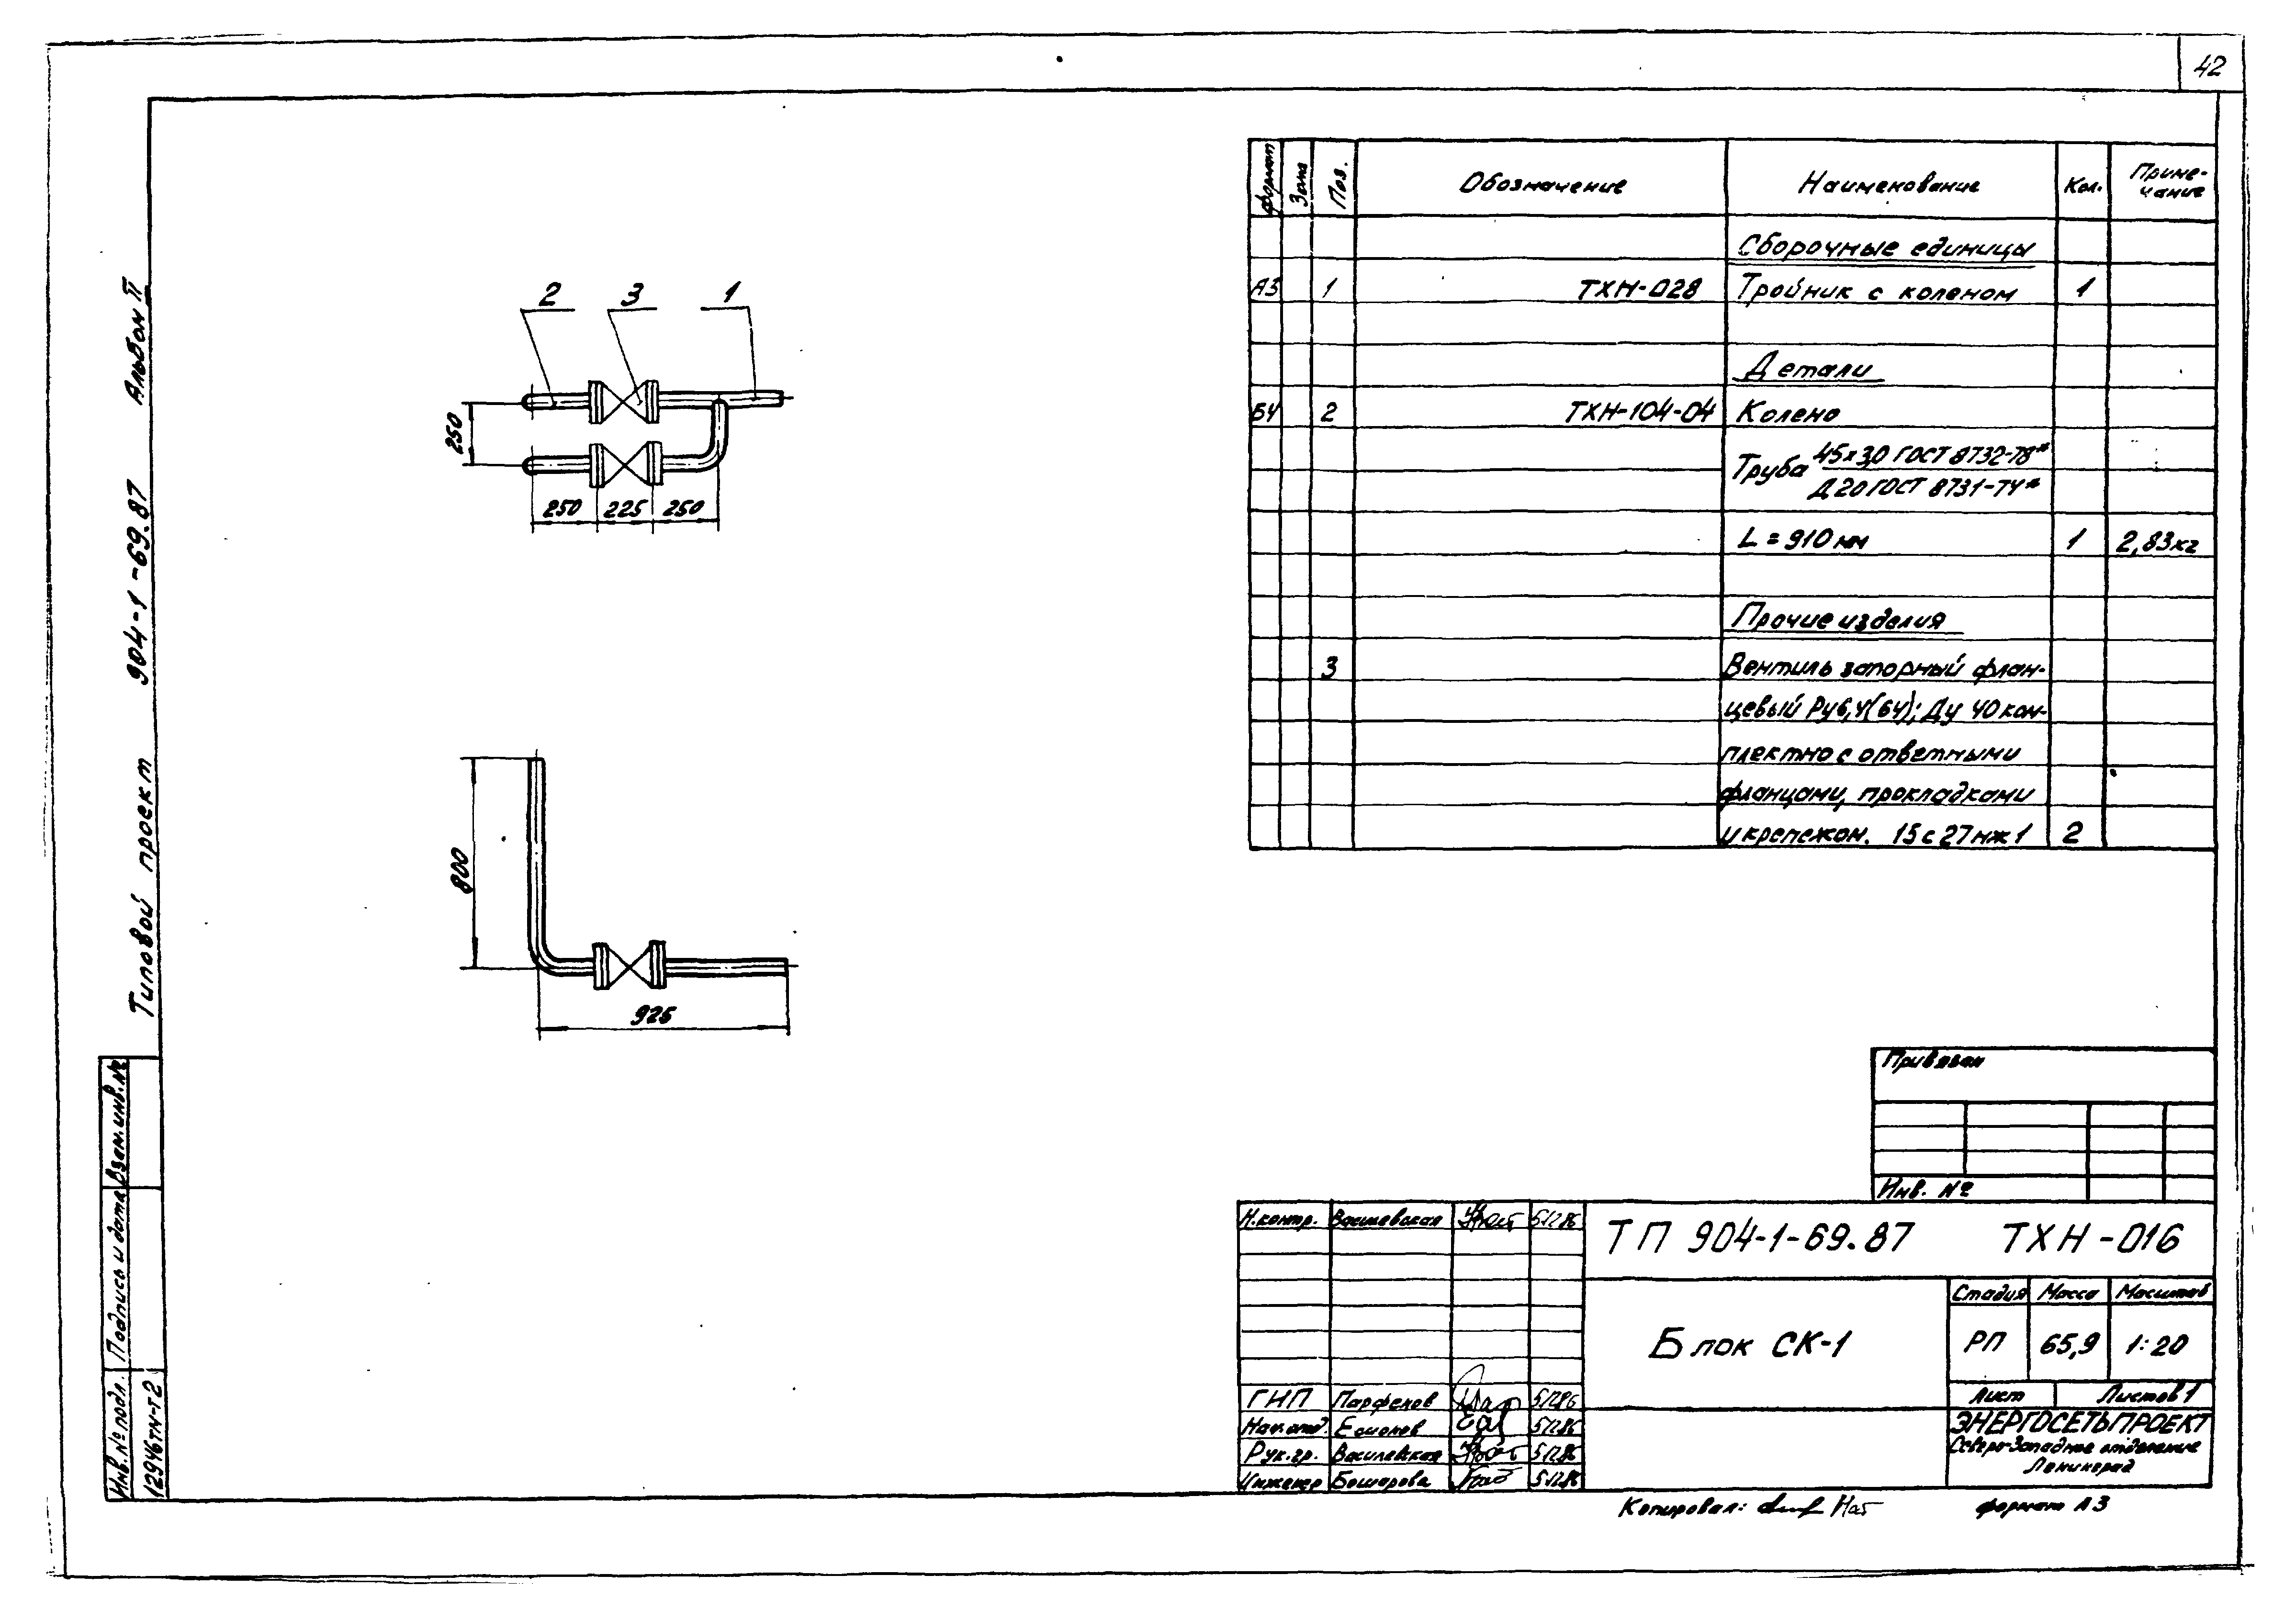 42
Типовой проект 904-1-69.87 Альбом II
2 3 1
250
250 225 250
800
925
Формат Зона Поз. Обозначение Наименование Кол. Приме-
чание
Сборочные единицы
А3 1 ТХН-028 Тройник с коленом 1
Детали
БЧ 2 ТХН-104-04 Колено
Труба 45х3,0 ГОСТ 8732-78*
Д20 ГОСТ 8731-74*
L = 910 мм 1 2,83 кг
Прочие изделия
3 Вентиль запорный флан-
цевый Ру6,4(64); Ду 40 ком-
плектно с ответными
фланцами, прокладками
и крепежом. 15с27нж1 2
Привязан
Инв. №
Н.контр. Василевская 5.12.86
ТП 904-1-69.87 ТХН-016
Блок СК-1
Стадия Масса Масштаб
РП 65,9 1:20
Лист Листов 1
ГИП Парфенов 5.12.86
Нач.отд. 5.12.86
Рук.гр. Василевская 5.12.86
Инженер Башарова 5.12.86
ЭНЕРГОСЕТЬПРОЕКТ
Северо-Западное отделение
Ленинград
Копировал:
формат А3
Взам.инв.№
Подпись и дата
Инв.№ подл.
12946тм-т2